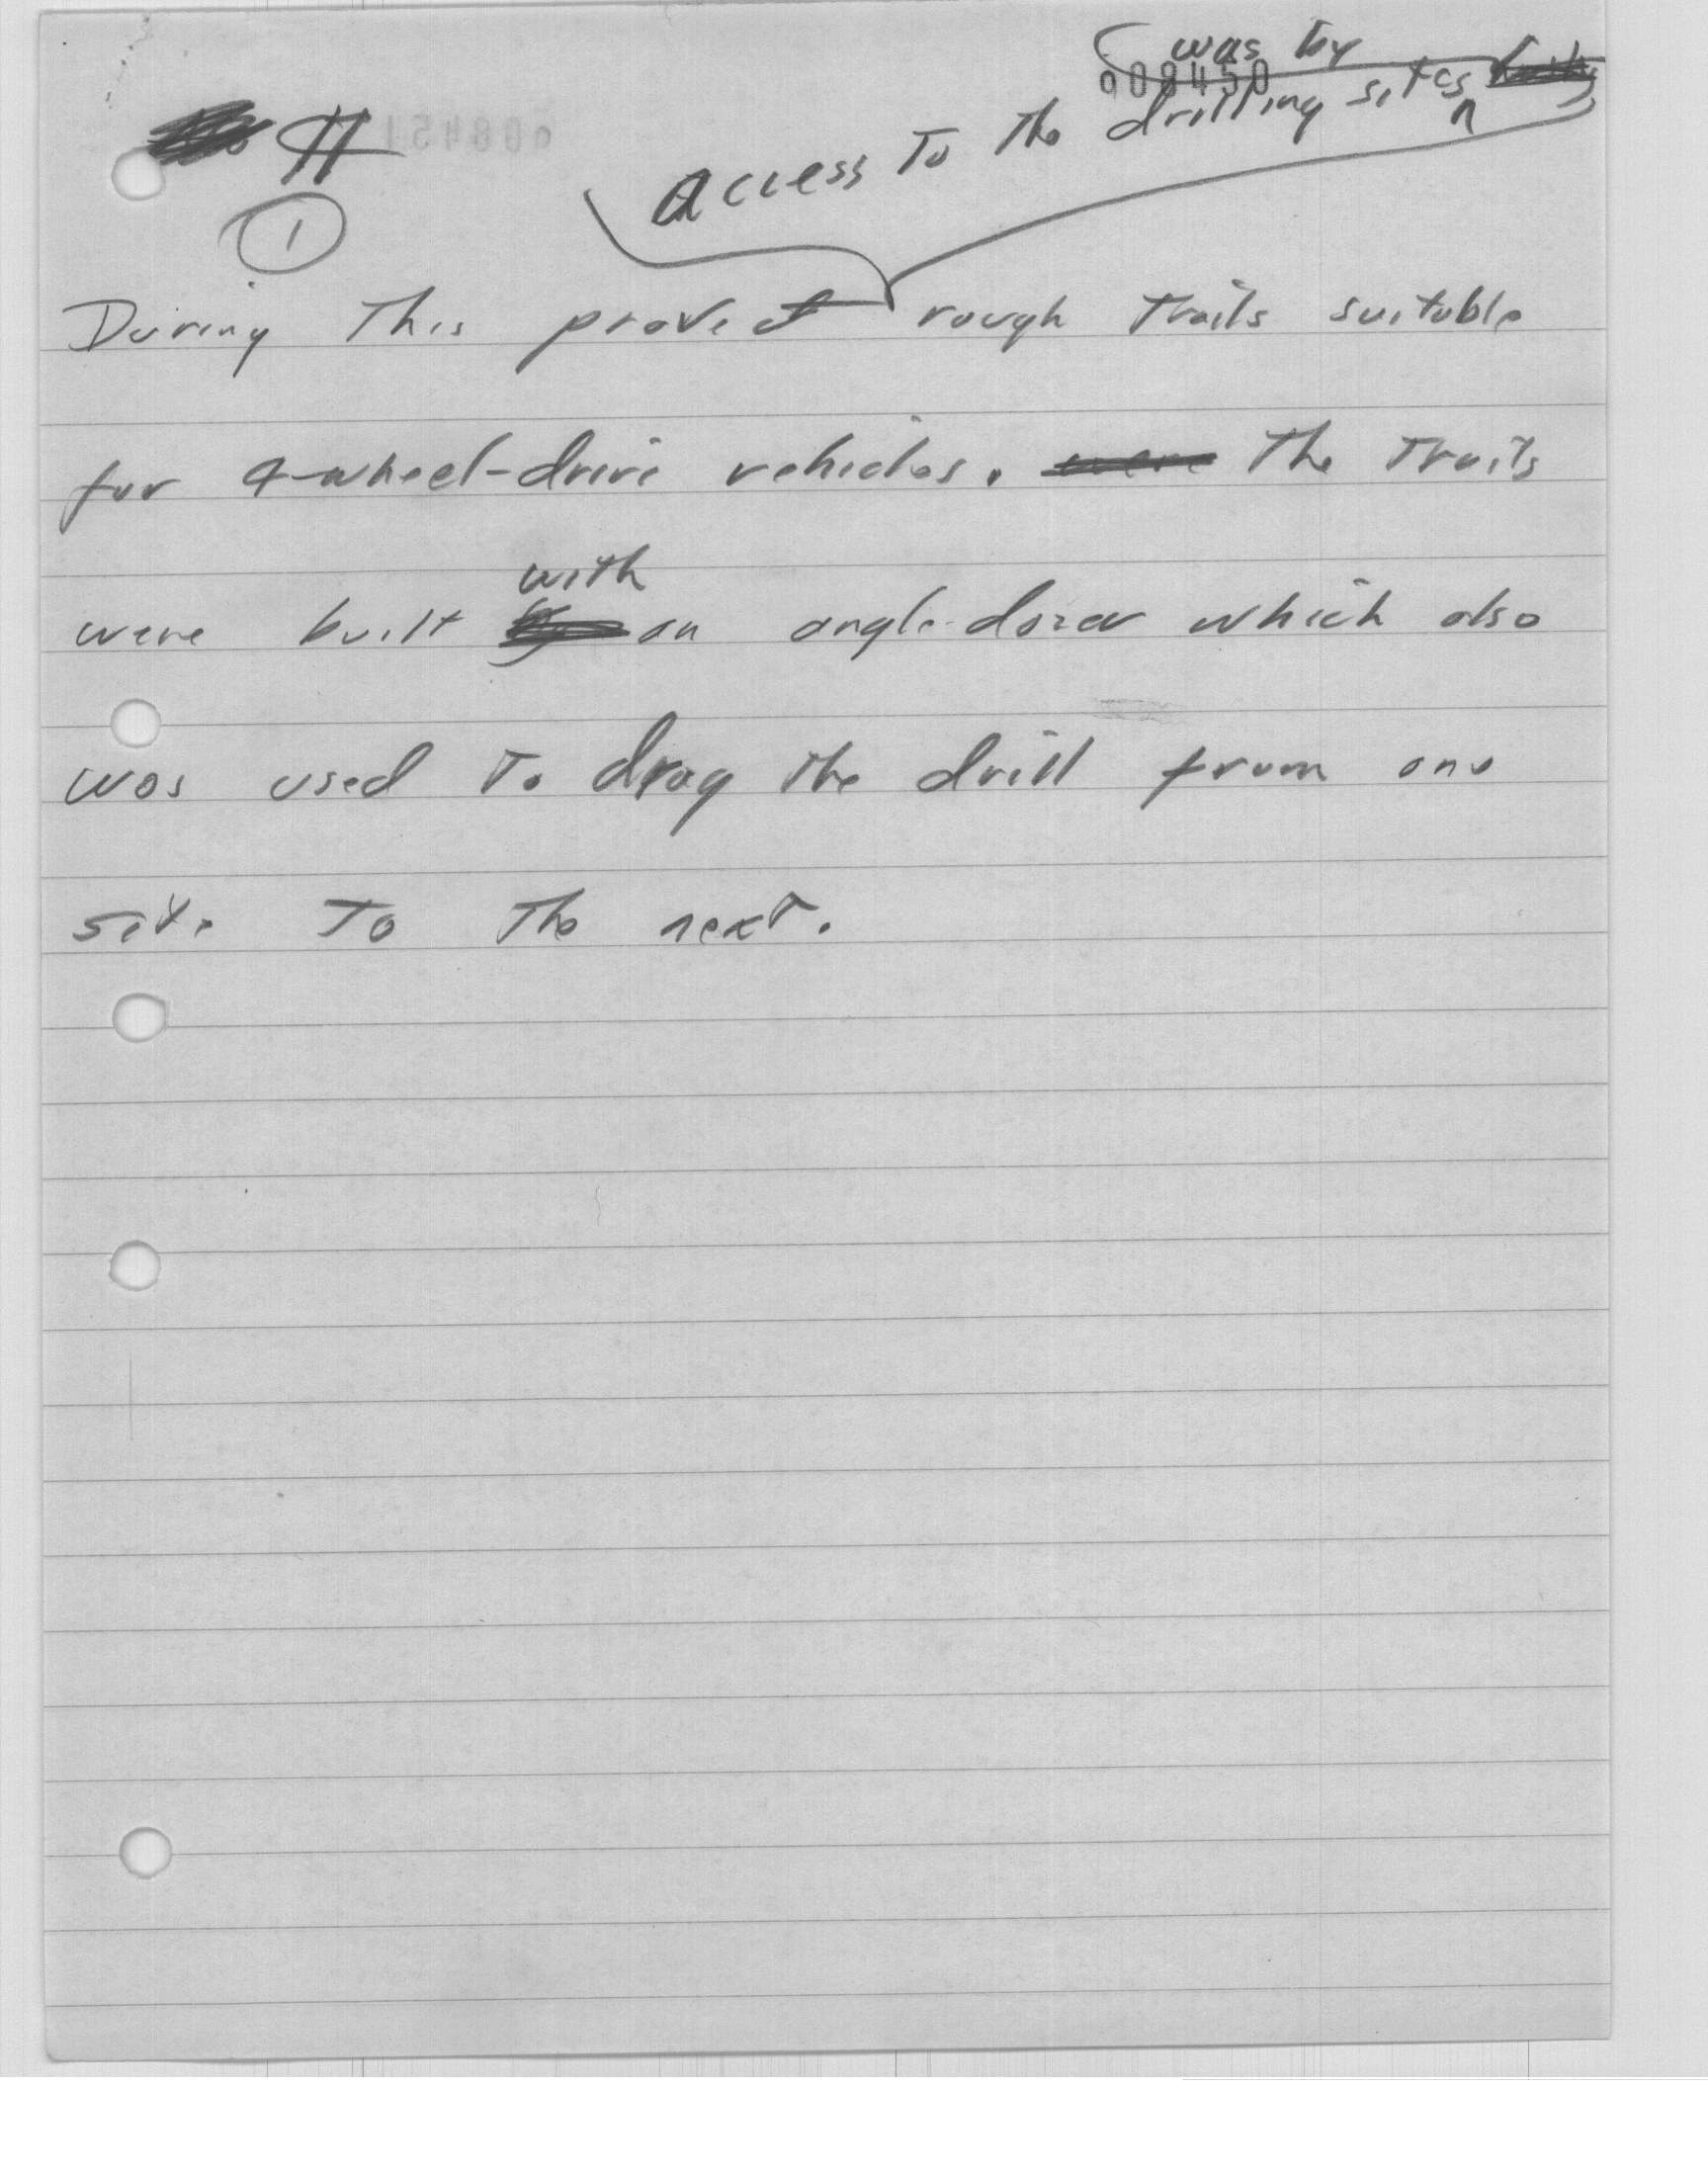 was by
008450
Access to the drilling sites
1
During this provect rough trails suitable
for 4-wheel-drive vehicles. were The trails
with
were built an angle-dozer which also
was used to drag the drill from one
site to the next.